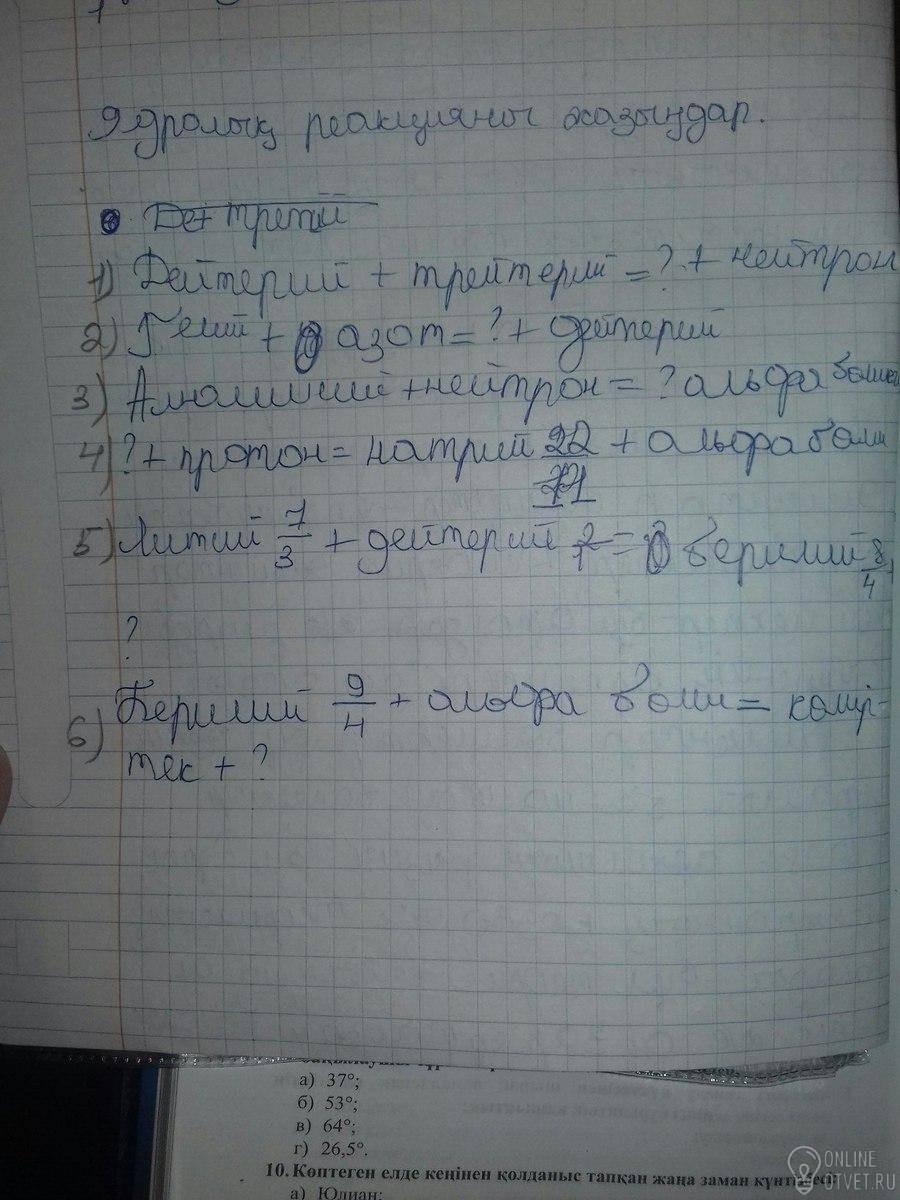 Ядролық реакцияны жазыңдар.
Дет третий
1) Дейтерий + трейтерий = ? + нейтрон
2) Гелий + азот = ? + дейтерий
3) Алюминий + нейтрон = ? альфа бөлшек
4) ? + протон = натрий 22/11 + альфа бөлш
5) Литий 7/3 + дейтерий 2/1 = бериллий 8/4
?
6) Бериллий 9/4 + альфа бөлш = көмір-
тек + ?
а) 37°;
б) 53°;
в) 64°;
г) 26,5°.
10. Көптеген елде кеңінен қолданыс тапқан жаңа заман күнтізбесі:
а) Юлиан;
ONLINE
OTVET.RU